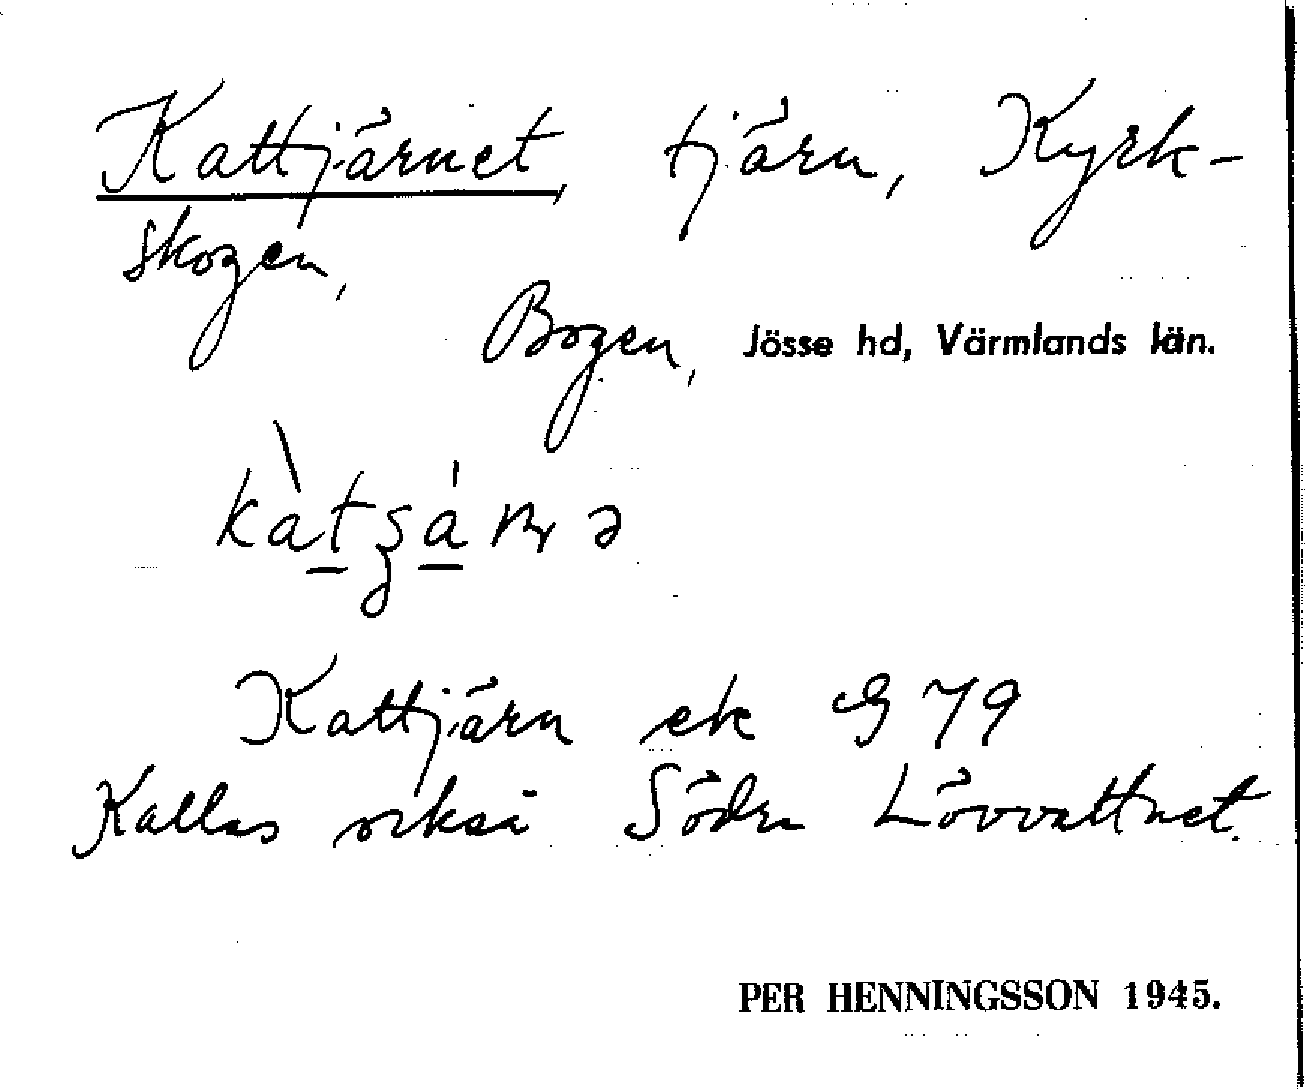 Kattjärnet, tjärn, Kyrk-
skogen,
Bogen, Jösse hd, Värmlands län.
Kattjärn ek G 79
Kallas också Södra Lövvattnet.
PER HENNINGSSON 1945.